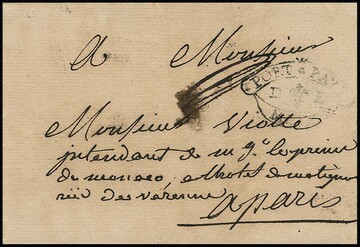 A Monsieur
PORT PAYÉ
Monsieur Viotte
intendant de m gr le prince
de monaco a lhotel de matignon
rüe des varenne
a paris